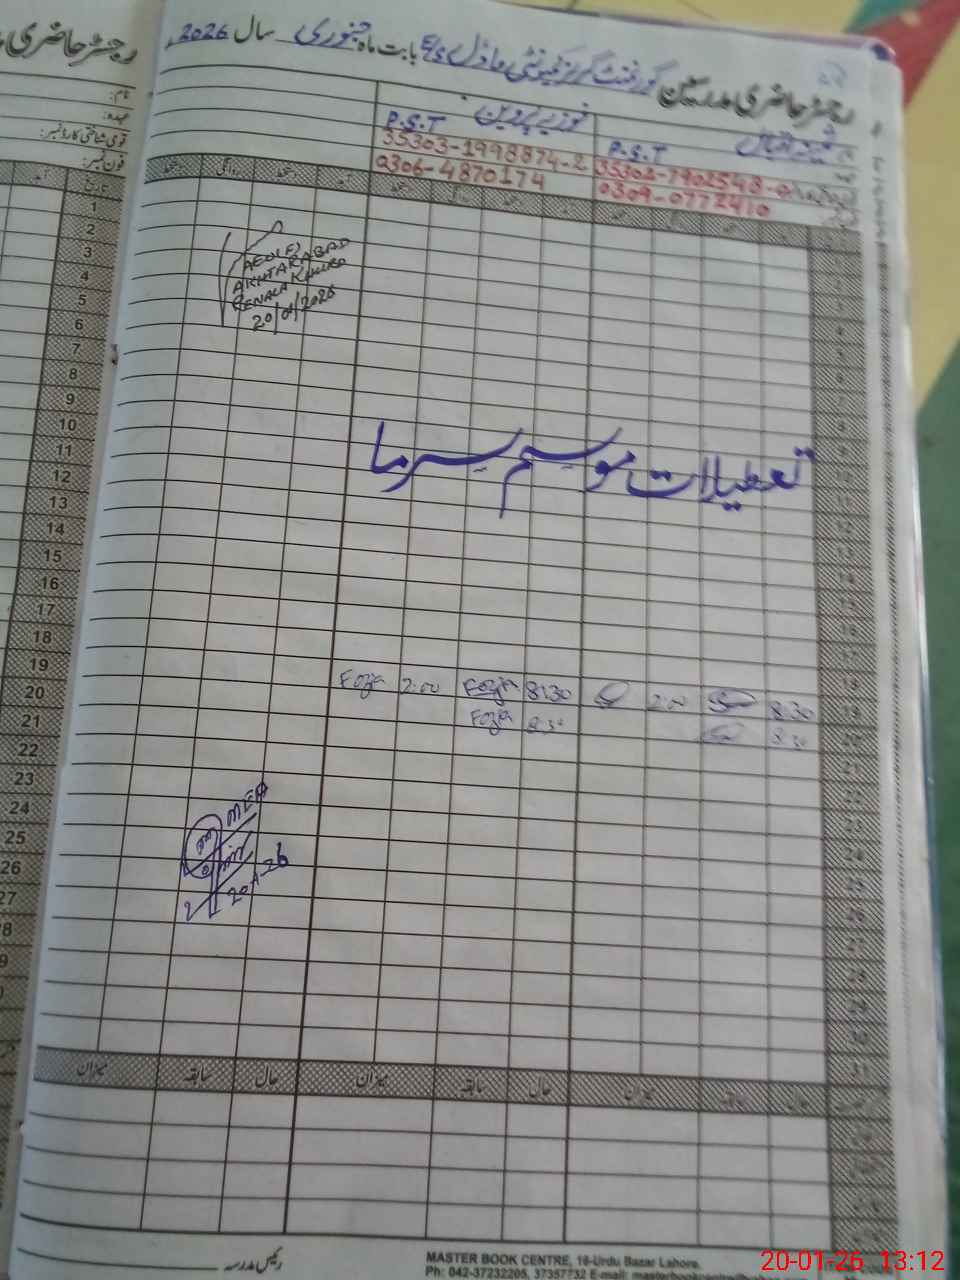 رجسٹر حاضری مدرسین گورنمنٹ گرلز کمیونٹی ماڈل E/S بابت ماہ جنوری سال 2026ء
رجسٹر حاضری
نام:
عہدہ:
قومی شناختی کارڈ نمبر:
فون نمبر:
فوزیہ پروین
P.S.T
P.S.T
35303-1998874-2
0306-4870174
0309-0772410
تاریخ
آمد
دستخط
روانگی
دستخط
1
2
3
4
5
6
7
8
9
10
11
12
13
14
15
16
17
18
19
20
21
22
23
24
25
26
27
28
AEO(F)
AKHTARABAD
RENALA KHURD
20/01/2026
تعطیلات موسم سرما
8:30 2:00 8:30 Fozia 2:00 Fozia
8:30 8:30 Fozia
MEA
20-1-26
میزان حال سابقہ میزان حال سابقہ میزان
رئیس مدرسہ
MASTER BOOK CENTRE, 16-Urdu Bazar Lahore.
Ph: 042-37232205, 37357732 E-mail:
20-01-26 13:12